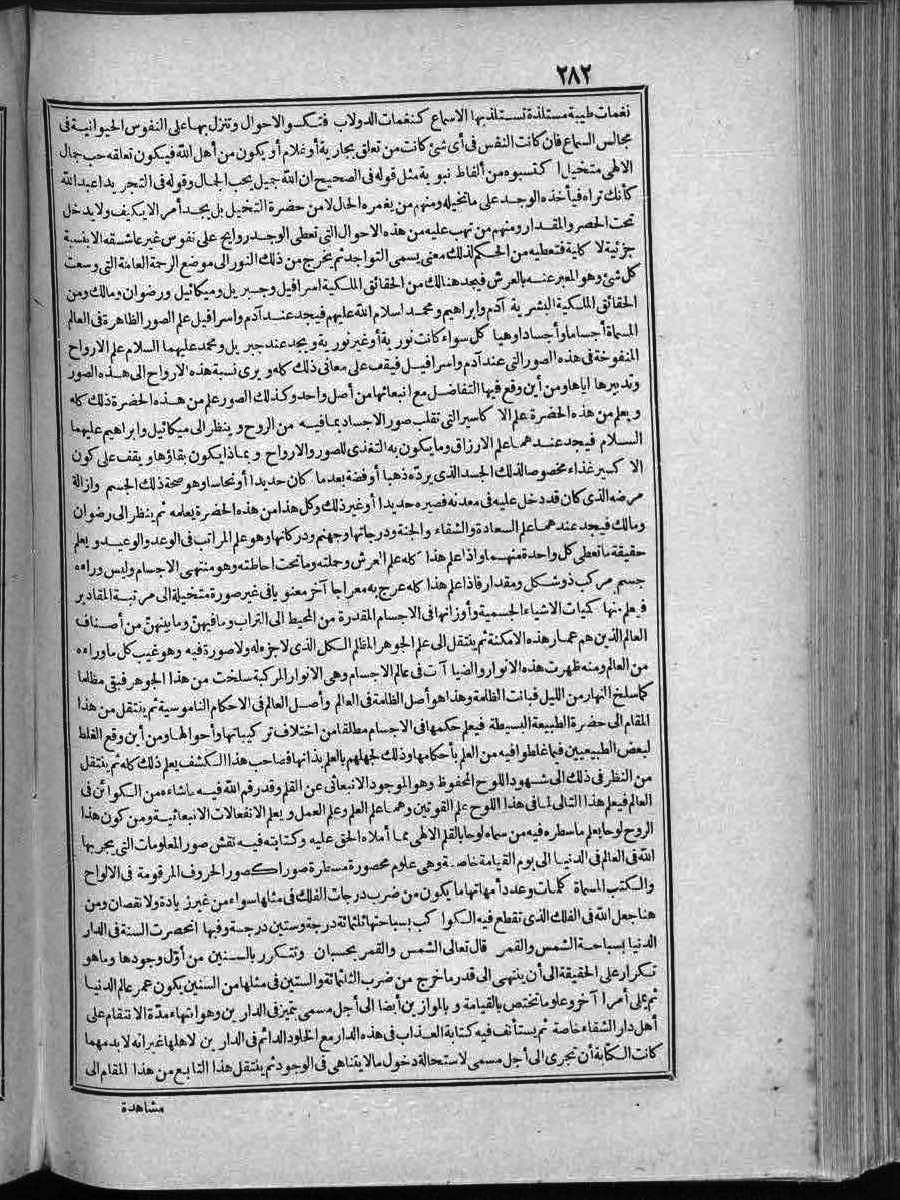 ٢٨٢
نغمات طيبة مستلذة تستلذ بها الاسماع كنغمات الدولاب فتكسو الاحوال وتنزل بها على النفوس الحيوانية فى
مجالس السماع فان كانت النفس فى أى شئ كانت من تعلق بجارية أو غلام أو يكون من أهل الله فيكون تعلقه حب جمال
الالهى متخيل اكتسبوه من ألفاظ نبوية مثل قوله فى الصحيح ان الله جميل يحب الجمال وقوله فى التجريد اعبد الله
كأنك تراه فيأخذه الوجد على ما تخيله ومنهم من يغمره الحال لا من حضرة التخيل بل يجد أمر الا يكيف ولا يدخل
تحت الحصر والمقدار ومنهم من تهب عليه من هذه الاحوال التى تعطى الوجد روايح على نفوس غير عاشقة الا بنسبة
جزئية لا كلية فتعطيه من الحكم لذلك معنى يسمى التواجد ثم يخرج من ذلك النور الى موضع الرحمة العامة التى وسعت
كل شئ وهو المعبر عنه بالعرش فيجد هنالك من الحقائق الملكية اسرافيل وجبريل وميكائيل ورضوان ومالك ومن
الحقائق الملكية البشرية آدم وابراهيم ومحمد اسلام الله عليهم فيجد عند آدم واسرافيل علم الصور الظاهرة فى العالم
المسماة أجساما وأجسادا وهيا كل سواء كانت نورية أو غير نورية ويجد عند جبريل ومحمد عليهما السلام علم الارواح
المنفوخة فى هذه الصور التى عند آدم واسرافيل فيقف على معانى ذلك كله ويرى نسبة هذه الارواح الى هذه الصور
وتدبيرها اياها ومن أين وقع فيها التفاضل مع انبعاثها من أصل واحد وكذلك الصور علم من هذه الحضرة ذلك كله
ويعلم من هذه الحضرة علم الا كاسير التى تقلب صور الاجساد بما فيه من الروح وينظر الى ميكائيل وابراهيم عليهما
السلام فيجد عندهما علم الارزاق وما يكون به التغذى للصور والارواح وبماذا يكون بقاؤها ويقف على كون
الا كسير غذاء مخصوصا لذلك الجسد الذى يرده ذهبا أو فضة بعدما كان حديدا أو نحاسا وهو صحة ذلك الجسم وازالة
مرضه الذى كان قد دخل عليه فى معدنه فصيره حديدا أو غير ذلك وكل هذا من هذه الحضرة يعلمه ثم ينظر الى رضوان
ومالك فيجد عندهما علم السعادة والشقاء والجنة ودرجاتها وجهنم ودركاتها وهو علم المراتب فى الوعد والوعيد ويعلم
حقيقة ما تعطى كل واحدة منهما واذا علم هذا كله علم العرش وحملته وما تحت احاطته وهو منتهى الاجسام وليس وراءه
جسم مركب ذو شكل ومقدار فاذا علم هذا كله عرج به معراجا آخر معنويا فى غير صورة متخيلة الى مرتبة المقادير
فيعلم منها كيات الاشياء الجسمية وأوزانها فى الاجسام المقدرة من المحيط الى التراب وما فيهن وما بينهن من أصناف
العالم الذين هم عمار هذه الامكنة ثم ينتقل الى علم الجوهر المظلم الكل الذى لا جزء له ولا صورة فيه وهو غيب كل ما وراءه
من العالم ومنه ظهرت هذه الانوار والضيا آت فى عالم الاجسام وهى الانوار المركبة سلخت من هذا الجوهر فبقى مظلما
كما سلخ النهار من الليل فبانت الظلمة وهذا هو أصل الظلمة فى العالم وأصل العالم فى الاحكام الناموسية ثم ينتقل من هذا
المقام الى حضرة الطبيعة البسيطة فيعلم حكمها فى الاجسام مطلقا من اختلاف تركيباتها وأحوالها ومن أين وقع الغلط
لبعض الطبيعيين فيما غلطوا فيه من العلم بأحكامها وذلك لجهلهم بالعلم بذاتها فصاحب هذا الكشف يعلم ذلك كله ثم ينتقل
من النظر فى ذلك الى شهود اللوح المحفوظ وهو الموجود الانبعاثى عن القلم وقد رقم الله فيه ما شاءه من الكوائن فى
العالم فيعلم هذا التالى لما فى هذا اللوح علم القوتين وهما علم العلم وعلم العمل ويعلم الانفعالات الانبعاثية ومن كون هذا
الروح لوحا يعلم ما سطره فيه من سماه لوحا بالقلم الالهى بما أملاه الحق عليه وكتابته فيه نقش صور المعلومات التى يجريها
الله فى العالم فى الدنيا الى يوم القيامة خاصة وهى علوم محصورة مسطرة صورا كصور الحروف المرقومة فى الالواح
والكتب المسماة كلمات وعدد أمهاتها ما يكون من ضرب درجات الفلك فى مثلها سواء من غير زيادة ولا نقصان ومن
هنا جعل الله فى الفلك الذى تقطع فيه الكواكب بسباحتها ثلثمائة درجة وستين درجة وفيها انحصرت السنة فى الدار
الدنيا بسباحة الشمس والقمر قال تعالى الشمس والقمر بحسبان وتتكرر بالسنين من أول وجودها وما هو
تكرار على الحقيقة الى أن ينتهى الى قدر ما خرج من ضرب الثلثمائة والستين فى مثلها من السنين يكون عمر عالم الدنيا
ثم يملى أمرا آخر وعلوما تختص بالقيامة وبالموازين أيضا الى أجل مسمى يتميز فى الدارين وهو انتهاء مدة الانتقام على
أهل دار الشقاء خاصة ثم يستأنف فيه كتابة العذاب فى هذه الدار مع الخلود الدائم فى الدارين لاهلها غير انه لا بد مهما
كانت الكتابة أن تجرى الى أجل مسمى لاستحالة دخول مالا يتناهى فى الوجود ثم ينتقل هذا التابع من هذا المقام الى
مشاهدة